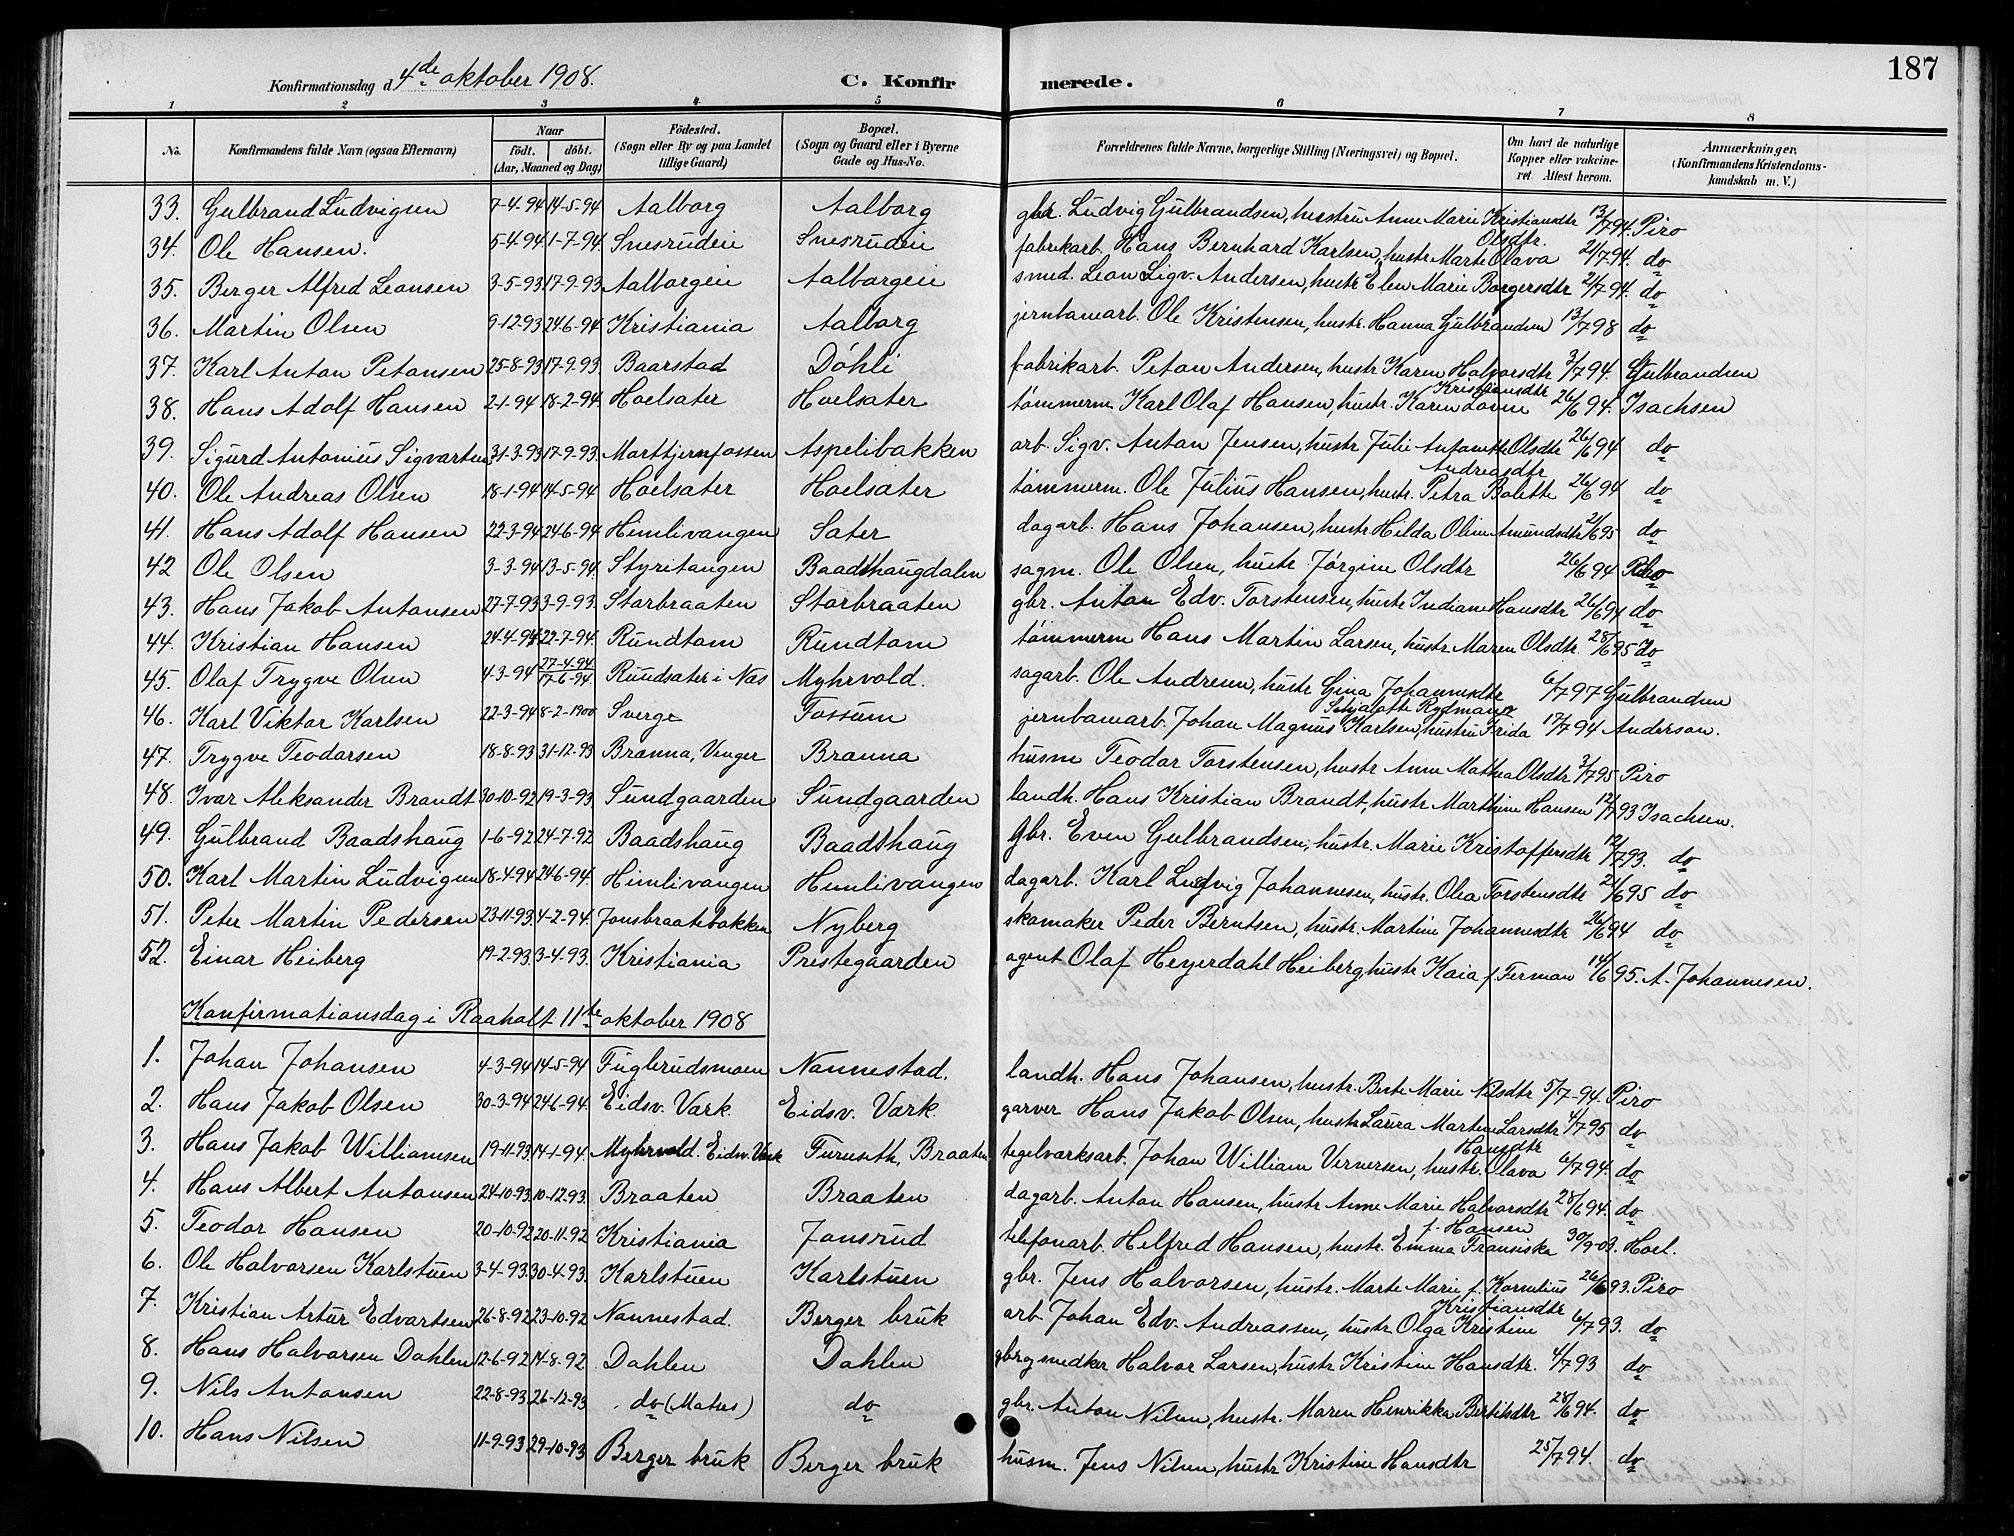 187
Konfirmationsdag d. 4de oktober 1908. C. Konfirmerede.
1 2 3 4 5 6 7 8
No. Konfirmandens fulde Navn (ogsaa Efternavn) Naar Födt. döbt. (Aar, Maaned og Dag) Födested. (Sogn eller By og paa Landet tillige Gaard) Bopæl. (Sogn og Gaard eller i Byerne Gade og Hus-No. Forældrenes fulde Navne, borgerlige Stilling (Næringsvei) og Bopæl. Om havt de naturlige Kopper eller vaccineret. Attest herom. Anmærkninger. (Konfirmandens Kristendomskundskab m. V.)
33. Gulbrand Ludvigsen 7-4-94 14-5-94 Aalborg Aalborg gbr. Ludvig Gulbrandsen, hustru Anne Marie Kristiansdtr 13/7 94. Piro
34. Ole Hansen. 5-4-94 1-7-94 Snesrudeie Snesrudeie fabrikarb. Hans Bernhard Karlsen, hustr Marte Olava Olsdtr. 21/7 94. do
35. Berger Alfred Leonsen 3-5-93 17-9-93 Aalborgeie Aalborgeie smed. Leon Sigv. Andersen, hustr Elen Marie Borgersdtr 21/7 94. do
36. Martin Olsen 9-12-93 24-6-94 Kristiania Aalborg jernbanearb. Ole Kristensen, hustr. Hanna Gulbrandsen 13/7 98 do
37. Karl Anton Petonsen 25-8-93 17-9-93 Baarstad Döhli fabrikarb. Peton Andersen, hustr Karen Halvorsdtr 3/7 94. Gulbrandsen
38. Hans Adolf Hansen 2-1-94 18-2-94 Hoelsæter Hoelsæter tømmerm Karl Olaf Hansen, hustr. Karen Lovise Kristiansdtr 26/6 94. Isachsen
39. Sigurd Antonius Sigvartsen 31-3-93 17-9-93. Morttjernfossen Aspelibakken arb. Sigv. Anton Jensen, hustr Julie Antonette Olsdtr 26/6 94 do
40. Ole Andreas Olsen 18-1-94 14-5-94 Hoelsæter Hoelsæter tømmerm. Ole Julius Hansen, hustr. Petra Bolette Andreasdtr 26/6 94 do
41. Hans Adolf Hansen 22-3-94 24-6-94 Himlivangen Sæter dagarb. Hans Johansen, hustr Hilda Oline Amundsdtr 21/6 95 do
42 Ole Olsen 3-3-94 13-5-94. Styritangen Baadshaugdalen sagm. Ole Olsen, hustr Jørgine Olsdtr 26/6 94
43. Hans Jakob Antonsen 27-7-93 3-9-93. Storbraaten Storbraaten gbr. Anton Edv. Torstensen, hustr Indiane Hansdtr 26/6 94 do
44. Kristian Hansen 24-4-94 22-7-94. Rundtom Rundtom tømmerm Hans Martin Larsen, hustr. Maren Olsdtr. 28/6 95 do
45. Olaf Trygve Olsen 4-3-94 27-4-94 17-6-94. Rundsæter i Næs Myhrvold. sagarb. Ole Andresen, hustr Gina Johannesdtr 6/7 97 Gulbrandsen
46. Karl Viktor Karlsen 22-3-94 8-2-1900 Sverge Fossum jernbanearb. Johan Magnus Karlsen, hustru Frida Rydmann 17/7 94 Anderson.
47. Trygve Teodorsen 18-8-93 31-12-93 Branna, Vinger Branna husm Teodor Torstensen, hustr Anne Mathea Olsdtr 3/7 95 Piro
48. Ivar Aleksander Brandt 30-10-92 19-3-93. Sundgaarden Sundgaarden landh. Hans Kristian Brandt, hustr Marthine Hansen 12/7 93 Isachsen.
49. Gulbrand Baadshaug 1-6-92 24-7-92 Baadshaug Baadshaug Gbr. Even Gulbrandsen, hustr. Marie Kristoffersdtr 12/7 93. do
50. Karl Martin Ludvigsen 18-4-94 24-6-94. Himlivangen Himlivangen dagarb. Karl Ludvig Johannesen, hustr. Olea Torstensdtr 21/6 95 do
51. Peter Martin Pedersen 23-11-93 4-2-94. Jonsbraatebakken Nyberg skomaker Peder Berntsen, hustr. Martine Johannesdtr 26/6 94 do
52. Einar Heiberg 19-2-93. 3-4-93. Kristiania Prestegaarden agent Olaf Heyerdahl Heiberg, hustr Kaia f. Ferman 14/6 95. A. Johannesen.
Konfirmationsdag i Raaholt 11te oktober 1908
1. Johan Johansen 4-3-94 14-5-94 Fuglerudsmoen Nannestad. landh. Hans Johansen, hustr. Berte Marie Nilsdtr 5/7-94. Piro
2. Hans Jakob Olsen 30-3-94 24-6-94. Eidsv. Værk Eidsv. Værk. garver Hans Jakob Olsen, hustr Laura Martine Larsdtr 4/7 95 do
3. Hans Jakob Williamsen 19-11-93 14-1-94. Myhrvold. Eidsv. Værk Furuseth, Braaten teglværksarb. Johan William Vernersen, hustr. Olava Hansdtr 6/7 94. do
4. Hans Albert Antonsen 24-10-93 10-12-93. Braaten Braaten dagarb. Anton Hansen, hustr Anne Marie Halvorsdtr 28/6 94. do
5. Teodor Hansen 20-10-92 20-11-92 Kristiania Jonsrud telefonarb. Helfred Hansen, hustr. Emma Fransiska f. Hansen 30/9-03. Hoel.
6. Ole Halvorsen Karlstuen 3-4-93. 30-4-93. Karlstuen Karlstuen gbr. Jens Halvorsen, hustr. Marte Marie f. Kornelius 26/6 93. Piro
7. Kristian Artur Edvartsen 26-8-92 23-10-92 Nannestad. Berger bruk arb. Johan Edv. Andreassen, hustr Olga Kristine Kristiansdtr 6/7 93. do
8. Hans Halvorsen Dahlen 12-6-92 14-8-92 Dahlen Dahlen gbr og snedker Halvor Larsen, hustr Kristine Hansdtr. 4/7 93 do
9. Nils Antonsen 22-8-93 26-12-93 do (Matus) do gbr. Anton Nilsen, hustr. Maren Henrikka Bertilsdtr 28/6 94. do
10. Hans Nilsen 11-9-93 29-10-93 Berger bruk Berger bruk husm. Jens Nilsen, hustr Kristine Hansdtr 25/7 94. do